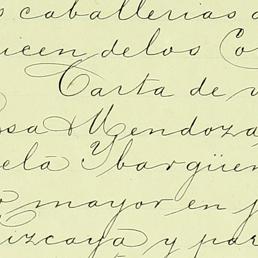 s caballerias d
uicen delos Co
Carta de v
osa Mendoza,
ela Ybargüen
o mayor en p
Vizcaya y par